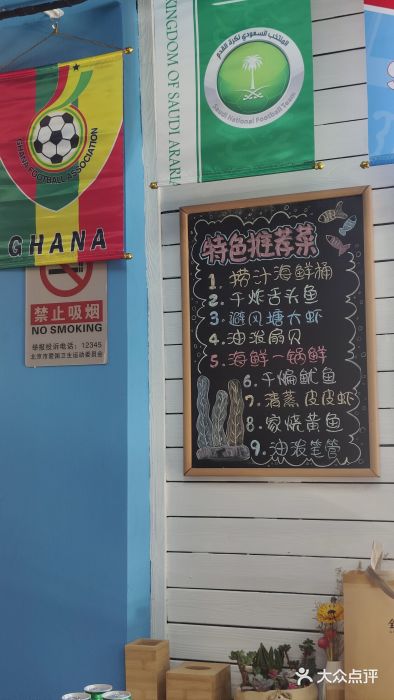 KINGDOM OF SAUDI ARARIA
المنتخب السعودي لكرة القدم
Saudi National Football Team
GHANA FOOTBALL ASSOCIATION
GHANA
禁止吸烟
NO SMOKING
举报投诉电话：12345
北京市爱国卫生运动委员会
特色推荐菜
1. 捞汁海鲜桶
2. 干炸舌头鱼
3. 避风塘大虾
4. 油泼扇贝
5. 海鲜一锅鲜
6. 干煸鱿鱼
7. 清蒸皮皮虾
8. 家烧黄鱼
9. 油泼笔管
大众点评